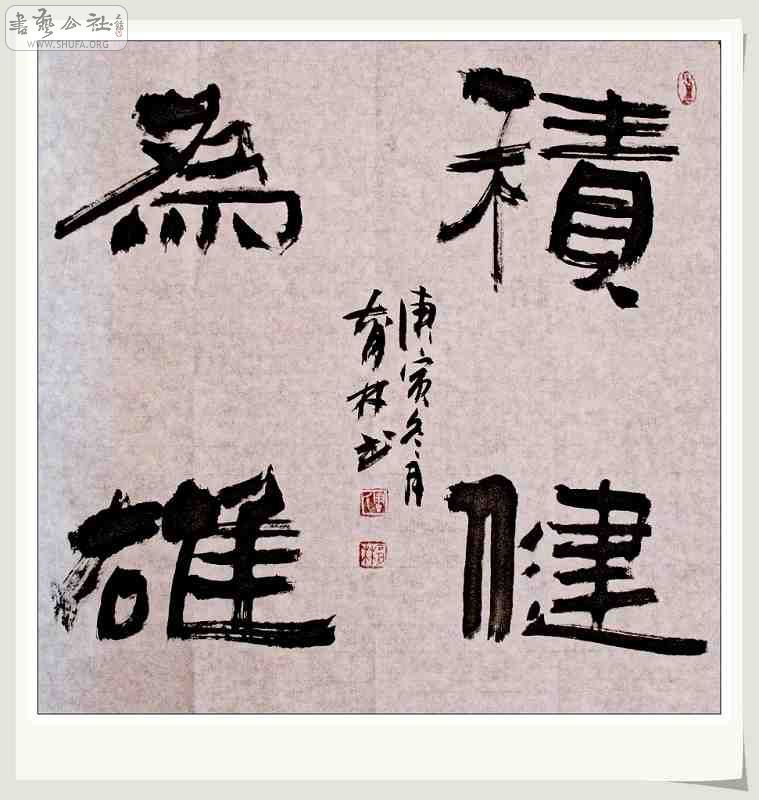 書藝公社
WWW.SHUFA.ORG
積健
為雄
庚寅冬月
育林书